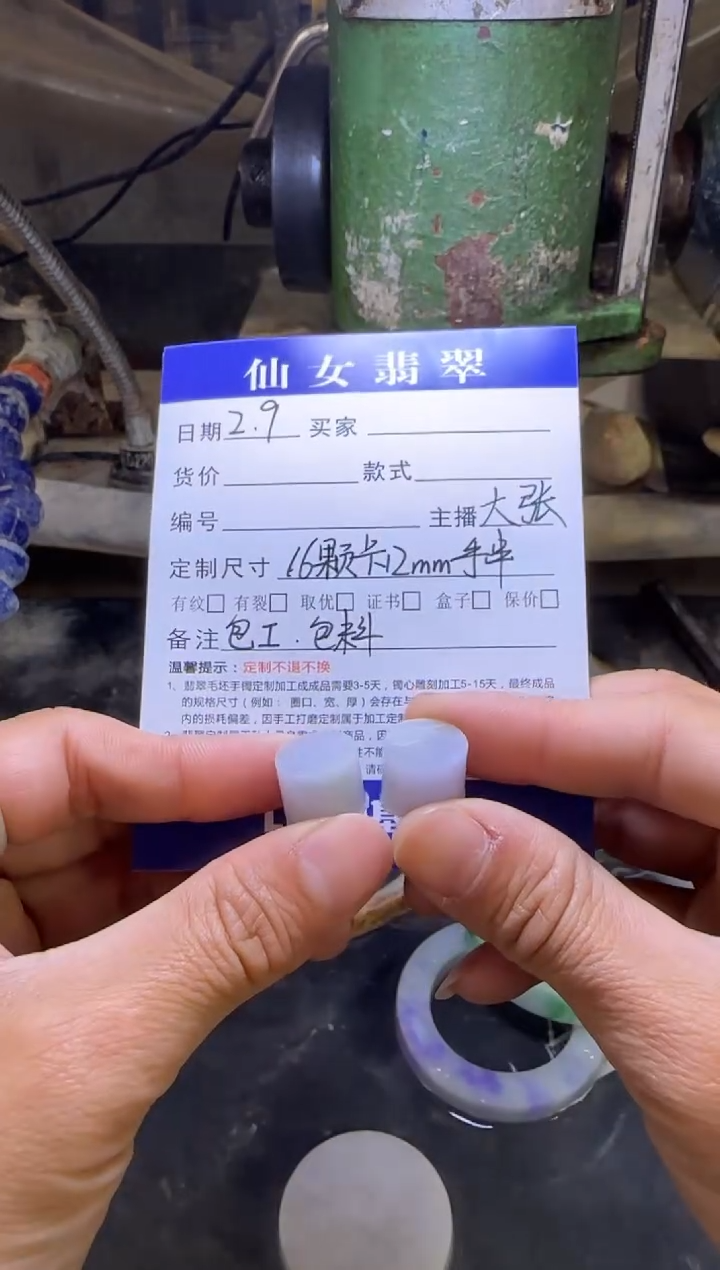 仙女翡翠
日期 2.9 买家
货价 款式
编号 主播 大张
定制尺寸 16颗卡12mm手串
有纹□ 有裂□ 取优□ 证书□ 盒子□ 保价□
备注 包工.包料
温馨提示：定制不退不换
1、翡翠毛坯手镯定制加工成成品需要3-5天，镯心雕刻加工5-15天，最终成品
的规格尺寸（例如：圈口、宽、厚）会存在与
内的损耗偏差，因手工打磨定制属于加工定制